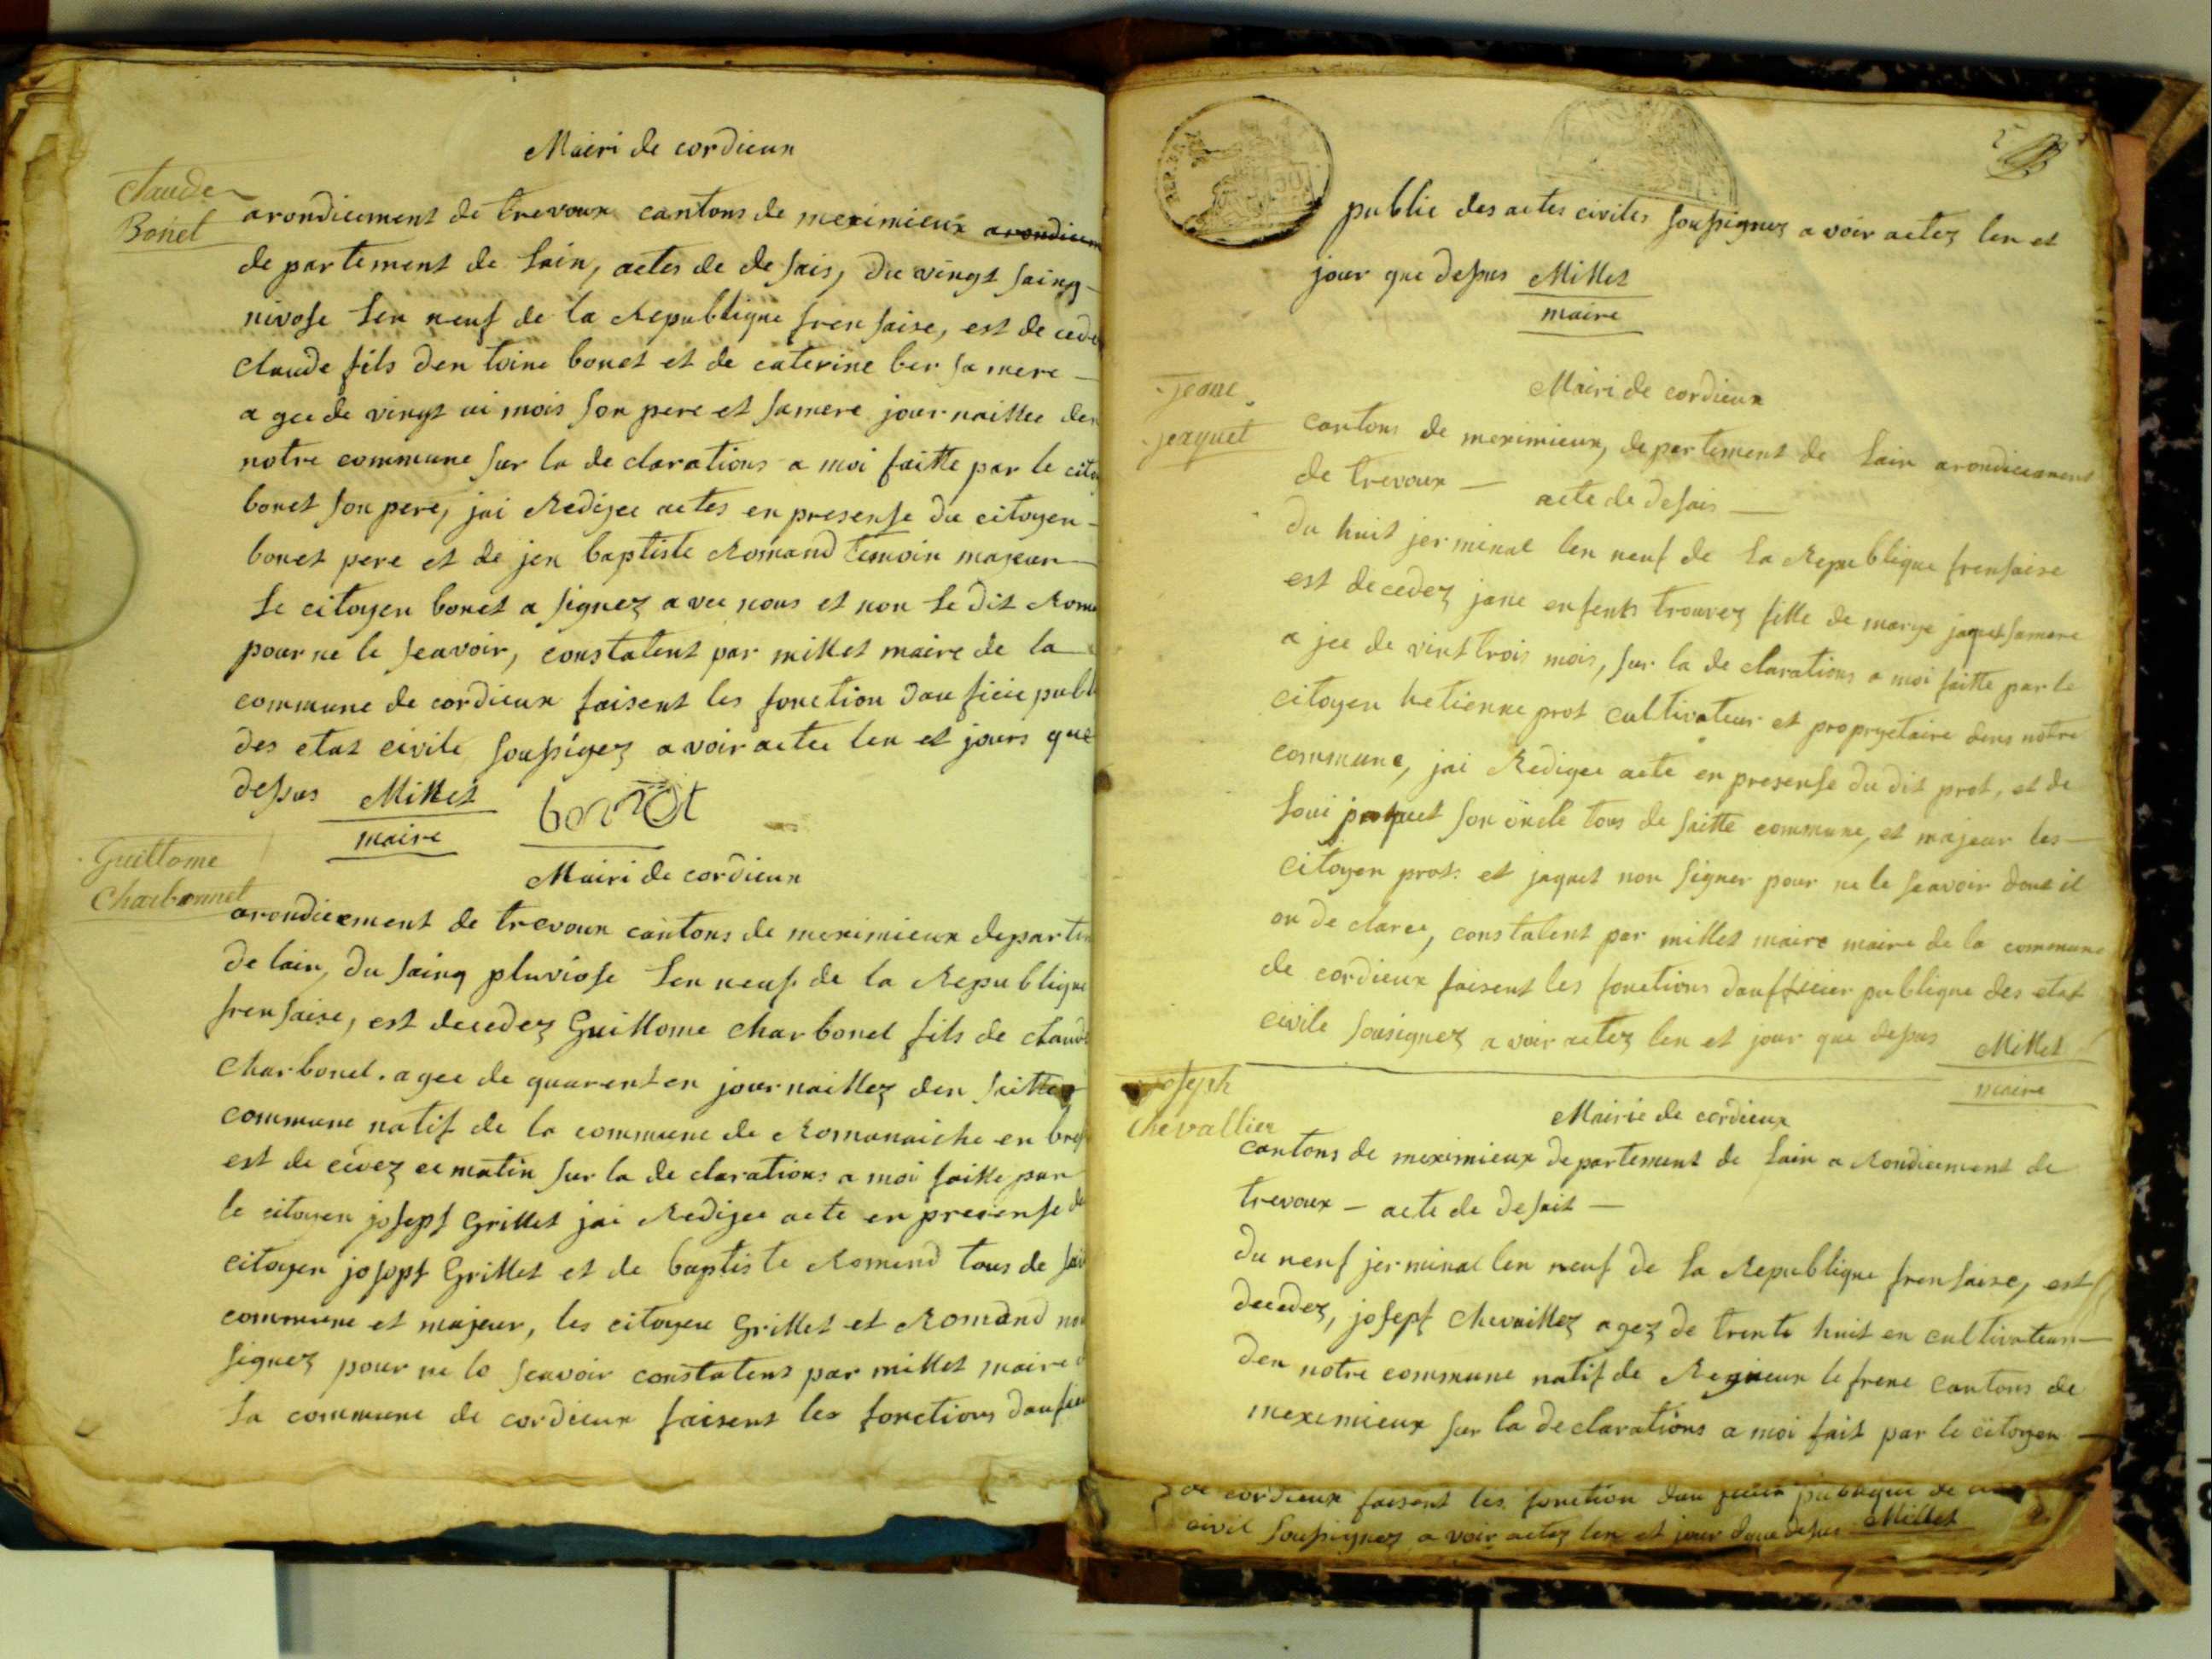 Mairi de cordieux
Claude
Bonet
arondicement de trevoux cantons de meximieux
departement de Lain, actes de desais, du vingt saing
nivose Len neuf de la Republique frensaise, est decede
claude fils dentoine bonet et de caterine ber sa mere
a gee de vingt ui mois son pere et sa mere journaillee den
notre commune sur la declarations a moi faitte par le
bonet son pere, jai Redigee actes en presense du citoyen
bonet pere et de jen baptiste Romand temoin majeur
Le citoyen bonet a signez avec nous et non Le dit
pour ne le seavoir, constatent par millet maire de la
commune de cordieux faisent les fonction dau ficie
des etat civile soussigez avoir actee len et jours que
dessus Millet
maire
bonnot
Guillome
Charbonnet
Mairi de cordieux
arondicement de trevoux cantons de meximieux
de lain, du saing pluviose Len neuf de la Republique
frensaise, est decedez Guillome charbonel fils de claude
charbonel. agee de quarent en journaillez den saitte
commune natif de la commune de Romanaiche en
est de cedez ce matin sur la declarations a moi faitte par
le citoyen josepf Grillet jai Redigee acte en presense
citoyen josepf Grillet et de baptiste Romend tous de
commune et majeur, les citoyen Grillet et Romand
signez pour ne lo seavoir constatens par millet maire
La commune de cordieux faisent les fonctions
REP. FRA.
public des actes civiles soussignez a voir actez len et
jour que dessus Millet
maire
Jeane
Jaquet
Mairi de cordieux
cantons de meximieux, departement de Lain arondicement
de trevoux — acte de desais —
du huit jerminal len neuf de La Republique frensaise
est decedez jane enfents trouvez fille de marye jaquet sa mere
a jee de vint trois mois, sur la declarations a moi faitte par le
citoyen hetienne prot cultivateur et propryetaire dens notre
commune, jai Redigee acte en presense du dit prot, et de
Loui jaquet son oncle tous de saitte commune, et majeur les
citoyen prot et jaquet non signer pour ne le seavoir donc il
on declaree, constatent par millet maire maire de la commune
de cordieux faisent les fonctions dauffficier publique des etat
civile sousignez a voir actez len et jour que dessus Millet
maire
Joseph
Chevallier
Mairie de cordieux
cantons de meximieux departement de Lain a Rondicement de
trevoux — acte de desait —
du neuf jerminal len neuf de La Republique frensaise, est
decedez, josepf chevaillez agez de trente huit en cultivateur
den notre commune natif de Regnieux le frene cantons de
meximieux sur la declarations a moi fait par le citoyen
de cordieux faisent les fonction publique
civil soussignez a voir actez len et jour dessus Millet